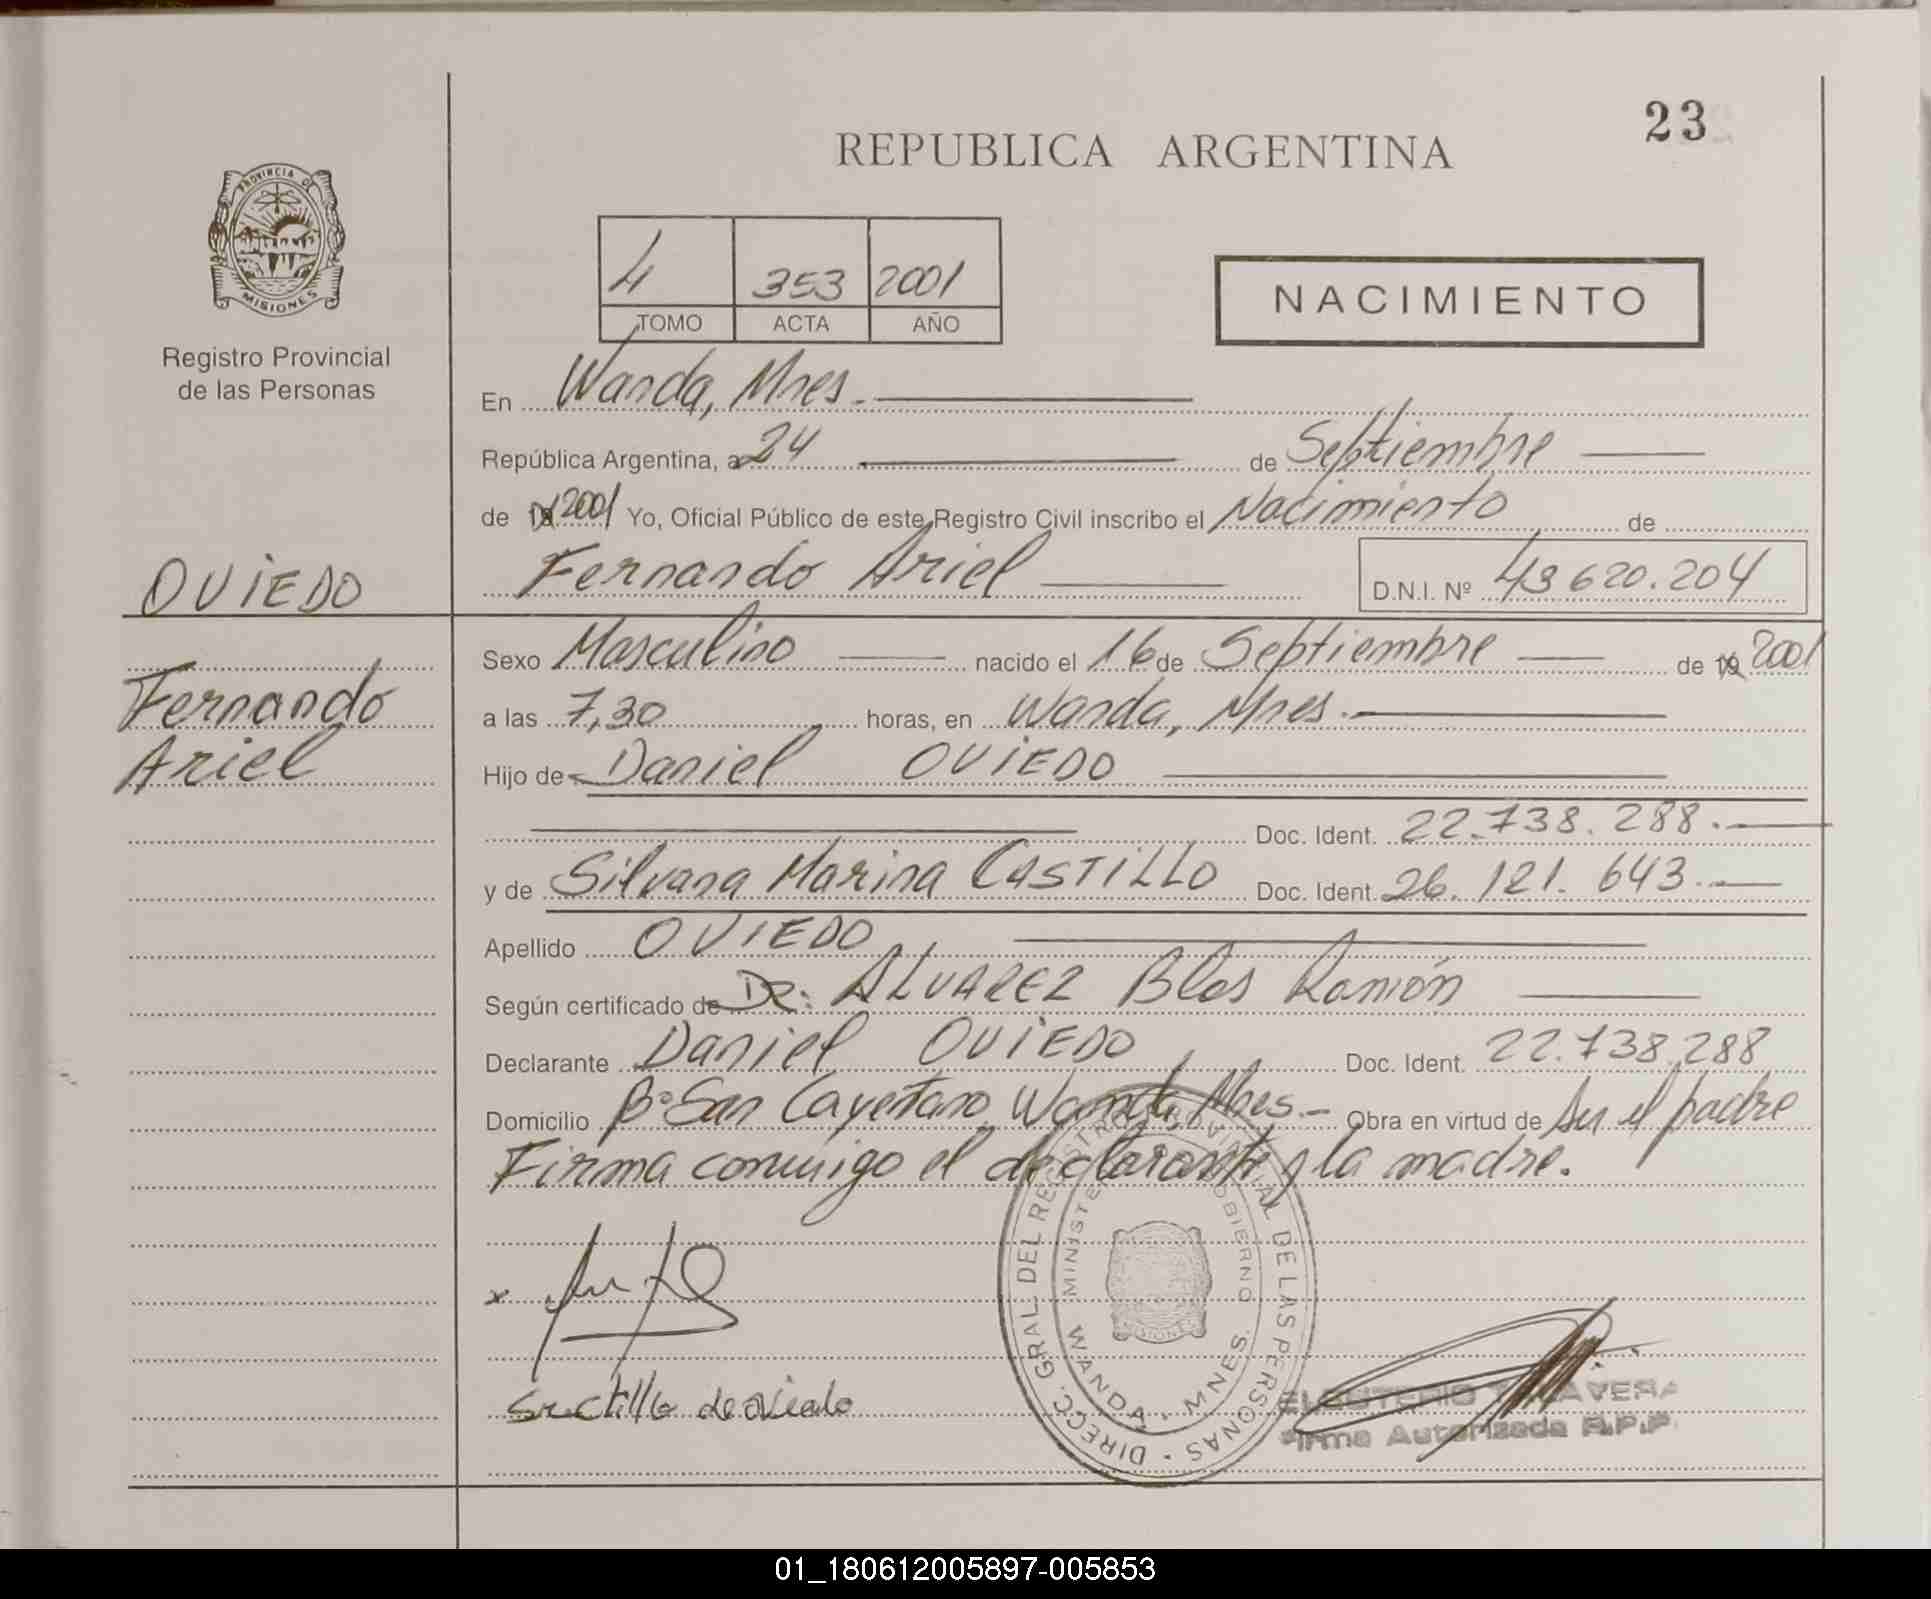 23
REPUBLICA ARGENTINA
PROVINCIA DE
MISIONES
Registro Provincial
de las Personas
4 353 2001
TOMO ACTA AÑO
NACIMIENTO
En Wanda, Mnes.
República Argentina, a 24 de Septiembre
de 19 2001 Yo, Oficial Público de este Registro Civil inscribo el Nacimiento de
Fernando Ariel D.N.I. Nº 43620.204
OVIEDO
Fernando
Ariel
Sexo Masculino nacido el 16 de Septiembre de 19 2001
a las 7,30 horas, en Wanda, Mnes.
Hijo de Daniel OVIEDO
Doc. Ident. 22.738.288.
y de Silvana Marina CASTILLO Doc. Ident. 26.121.643.
Apellido OVIEDO
Según certificado de Dr: ALVAREZ Blas Ramón
Declarante Daniel OVIEDO Doc. Ident. 22.738.288
Domicilio Bº San Cayetano, Wanda, Mnes.- Obra en virtud de Su el padre
Firma conmigo el declarante y la madre.
DIRECC. GRAL. DEL REGISTRO PROVINCIAL DE LAS PERSONAS
GOBIERNO
WANDA - MNES.
de Oviedo
Firma Autorizada R.P.P.
01_180612005897-005853